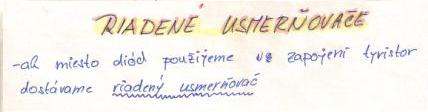 RIADENÉ USMERŇOVAČE
-ak miesto diód použijeme vs zapojení tyristor
dostávame riadený usmerňovač